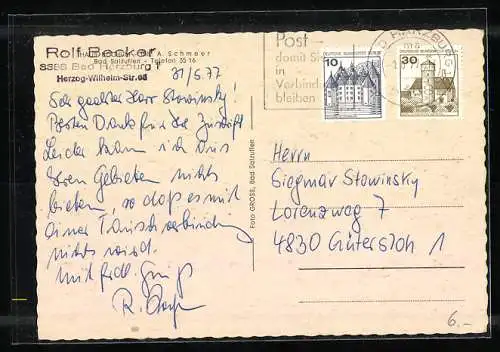 Rolf Becker
3388 Bad Harzburg 1
Herzog-Wilhelm-Str. 68
A. Schmeer
Bad Salzuflen - Telefon 35 16
31/5.77
Sehr geehrter Herr Stowinsky!
Besten Dank für Ihre Zuschrift
Leider kann ich aus
Ihren Gebieten nichts
bieten, so daß es mit
einer Tauschverbindung
nichts wird.
Mit frdl. Gruß
R.
Foto GROSS, Bad Salzuflen
Post -
damit Sie
in
Verbindung
bleiben
BAD HARZBURG
10
DEUTSCHE BUNDESPOST BERLIN
30
DEUTSCHE BUNDESPOST BERLIN
Herrn
Siegmar Stowinsky
Lorenzweg 7
4830 Gütersloh 1
6.-